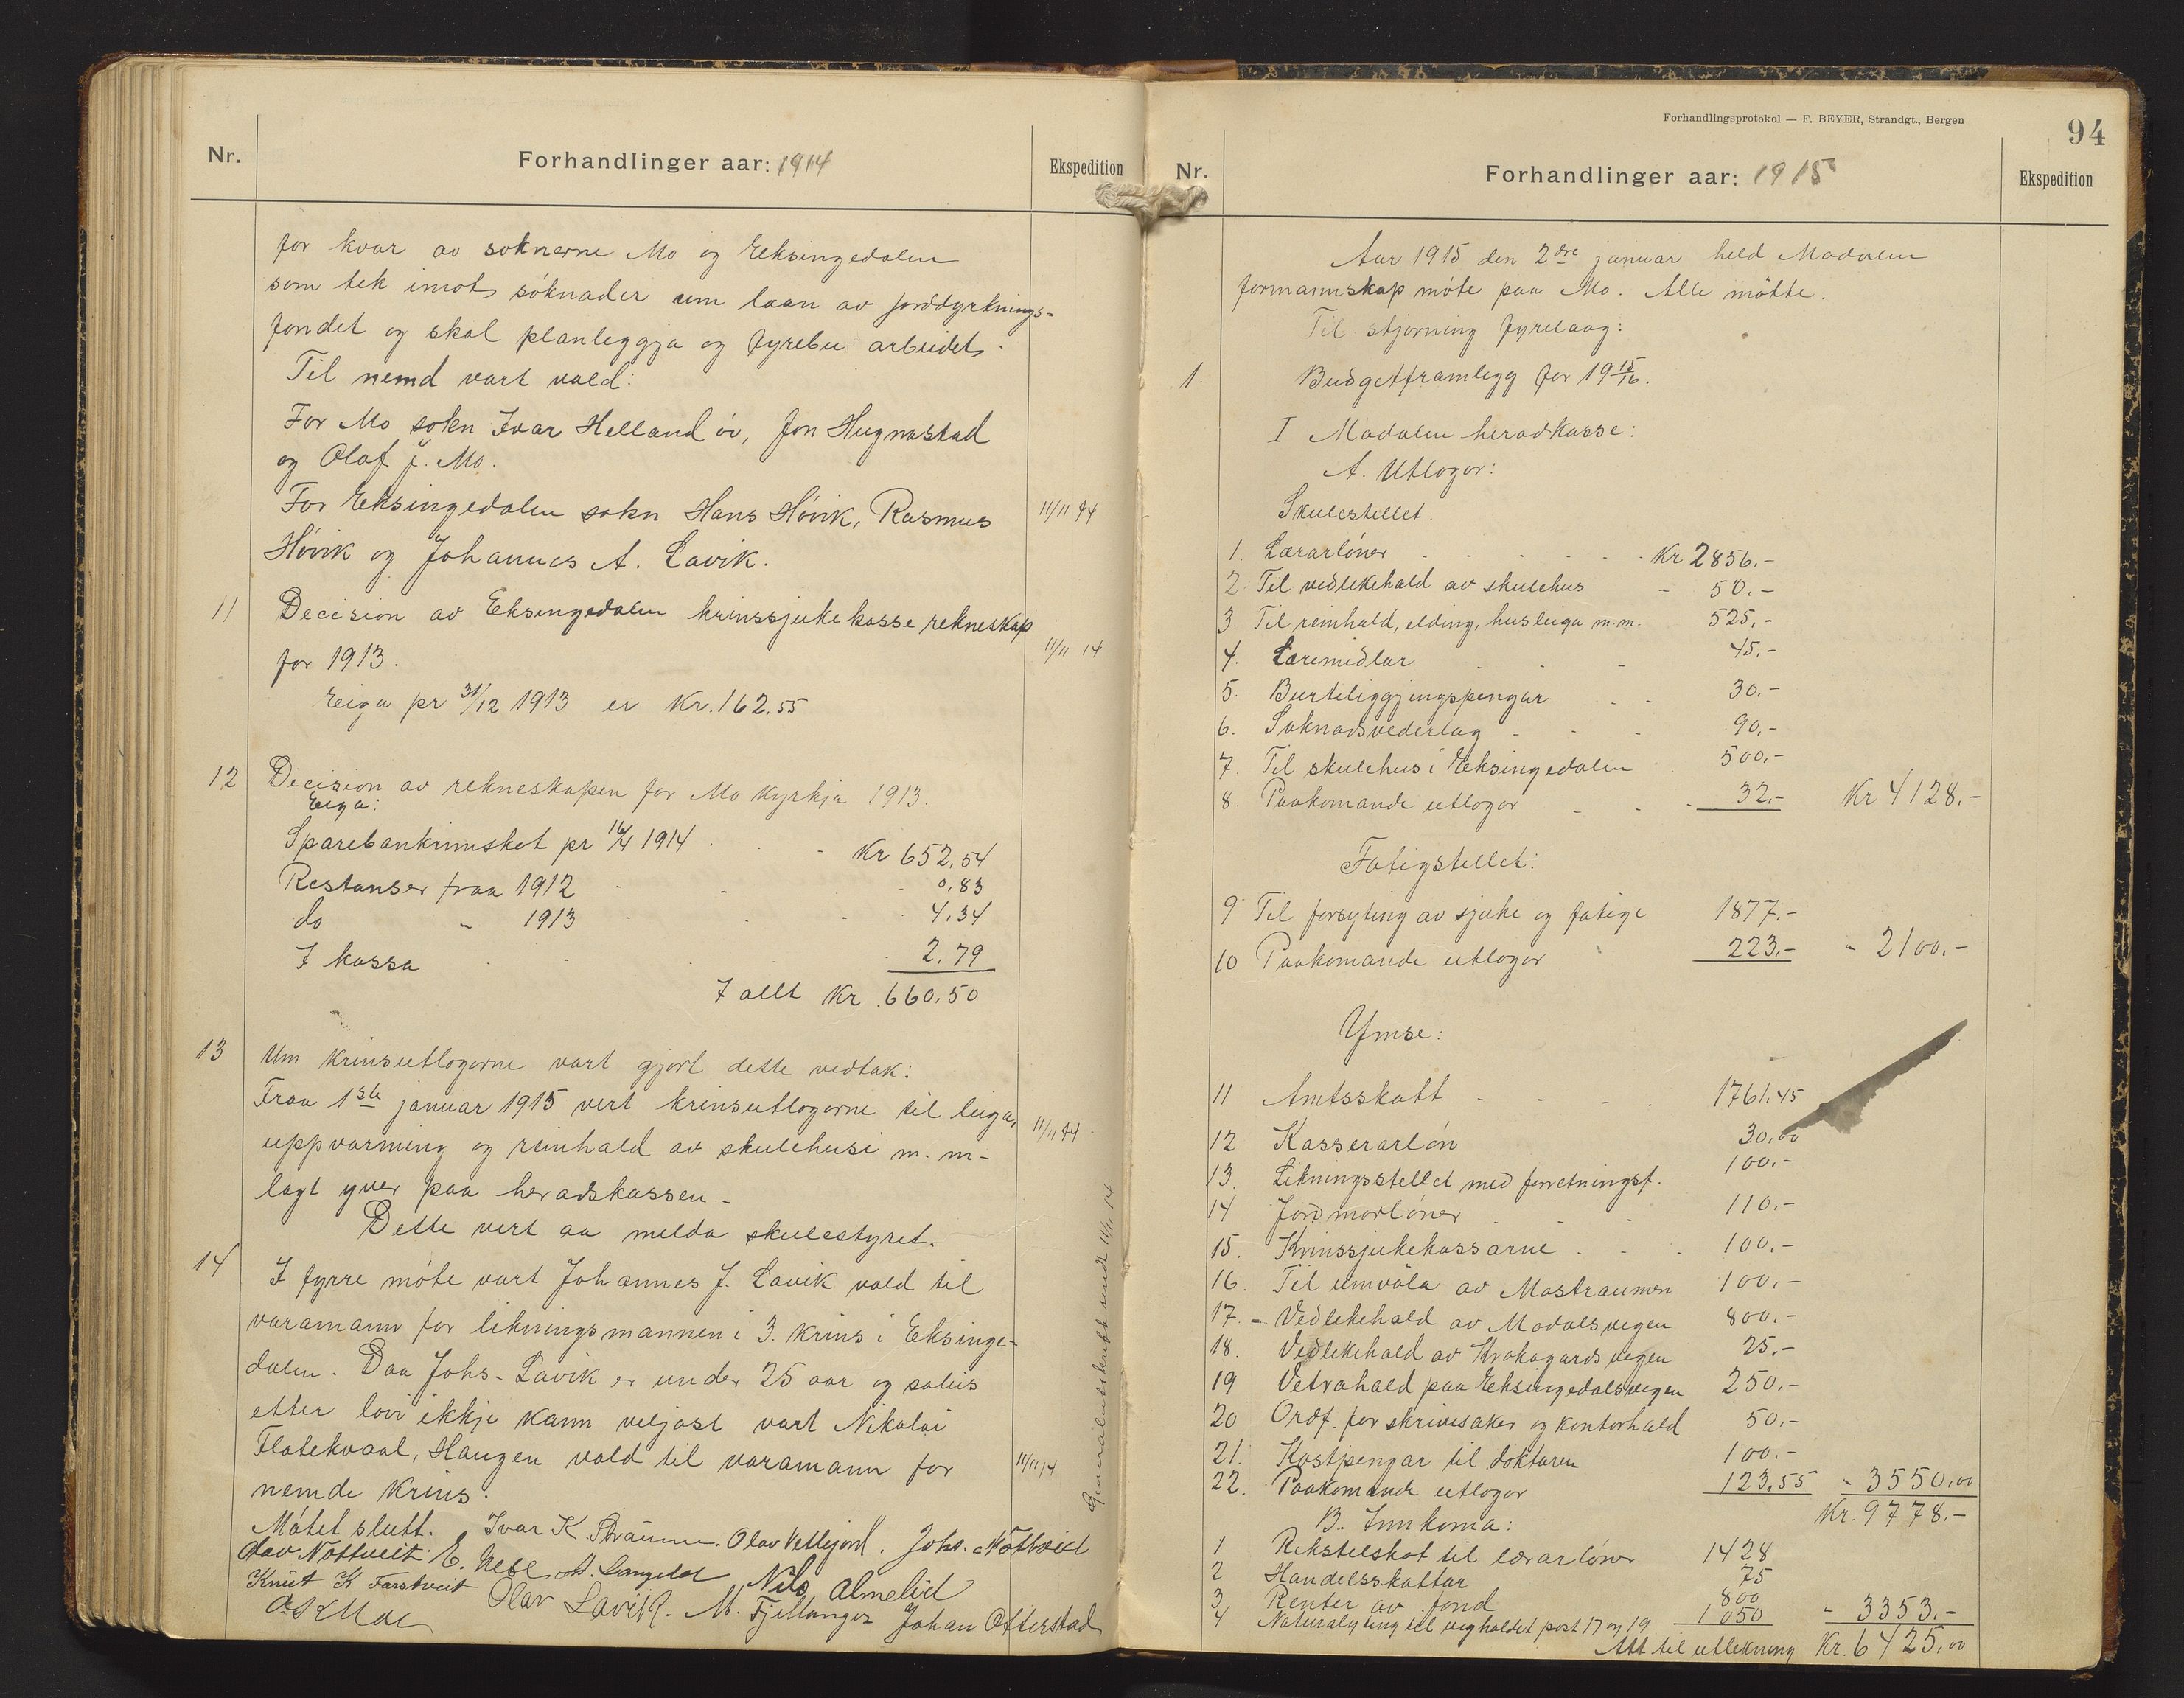 Nr.
Forhandlinger aar: 1914
Ekspedition
for kvar av soknerne Mo og Eksingedalen
som tek imot søknader um laan av jorddyrknings-
fondet og skal planleggja og fyrebu arbeidet.
Til nemd vart vald:
For Mo sokn Ivar Helland øv, Jon Hugnastad
og Olaf J. Mo.
For Eksingedalen sokn Hans Høvik, Rasmus
11/11 14
Høvik og Johannes A. Lavik.
11 Decision av Eksingedalen krinssjukekasse rekneskap
for 1913.
11/11 14
Eiga pr 31/12 1913 er Kr. 162.55
12 Decision av rekneskapen for Mo kyrkja 1913.
Eiga:
Sparebankinnskot pr 16/4 1914 Kr 652,54
Restanser fraa 1912 0,83
do - 1913 4,34
I kassa 2,79
I allt Kr. 660,50
13 Um krinsutlogorne vart gjort dette vedtak:
Fraa 1ste januar 1915 vert krinsutlogorne til leiga,
11/11 14
uppvarming og reinhald av skulehusi m.m-
lagt yver paa heradskassen -
Dette vert aa melda skulestyret.
14 I fyrre møte vart Johannes J. Lavik vald til
varamann for likningsmannen i 3. krins i Eksinge-
dalen. Daa Johs. Lavik er under 25 aar og soleis
etter lovi ikkje kann veljast vart Nikolai
Flatekvaal, Haugen vald til varamann for
11/11 14
nemde krins.
Møtet slutt. Ivar K. Straume. Olav Vetlejord. Johs. Nottveit
Olav Nottveit. E. Nese A. Langeland Nils Almelid
Knut K Farstveit Olav Lavik. M. Fjellanger Johan Otterstad
Generalutskrift sendt 11/11 14
Forhandlingsprotokol — F. BEYER, Strandgt., Bergen
94
Nr.
Forhandlinger aar: 1915
Ekspedition
Aar 1915 den 2dre januar held Modalen
formannskap møte paa Mo. Alle møtte.
Til styrning fyrelaag:
1. Budgetframlegg for 19 15/16.
I Modalen heradkasse:
A. Utlogor:
Skulestellet.
1. Lærarløner Kr 2856.-
2. Til vedlikehald av skulehus - 50.-
3. Til reinhald, elding, husleiga m.m. 525,-
4. Læremidlar 45.-
5. Burteliggjingspengar 30.-
6. Soknadsvederlag 90,-
7. Til skulehus i Eksingedalen 500,-
8. Paakomande utlogor 32.- Kr 4128.-
Fatigstellet:
9 Til forsyting av sjuke og fatige 1877.-
10 Paakomande utlogor 223.- - 2100.-
Ymse:
11 Amtsskatt 1761,45
12 Kasserarløn 30,00
13. Likningsstellet med forretningsf. 100.-
14 Jordmorløner 110.-
15. Krinssjukekassarne 100.-
16. Til umvøla av Mostraumen 100.-
17. - Vedlikehald av Modalsvegen 800.-
18. Vedlikehald av Krokagardsvegen 25.-
19 Vetrahald paa Eksingedalsvegen 250.-
20 Ordf. for skrivesaker og kontorhald 50.-
21. Kostpengar til doktoren 100.-
22. Paakomande utlogor 123.55 - 3550,00
Kr. 9778.-
B. Innkoma:
1 Rikstilskot til lærarløner 1428
2 Handelsskattar 75
3 Renter av fond 800
4 Naturalyting til veghaldet post 17 og 19 1050 - 3353.-
Att til utlikning Kr. 6425,00